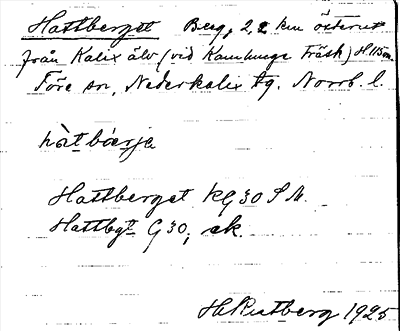 Hattberget Berg, 2,2 km österut
från Kalix älv (vid Kamlunge Träsk) H. 115 m.
Töre sn, Nederkalix tg. Norrb. l.
hàt bæ̀rjə
Hattberget KG 30 S N.
Hattbgt G 30, ek.
H. Rutberg 1925